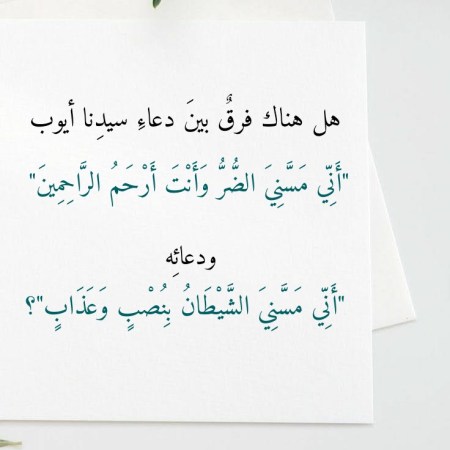 هل هناك فرقٌ بينَ دعاءِ سيدِنا أيوب
"أَنِّي مَسَّنِيَ الضُّرُّ وَأَنْتَ أَرْحَمُ الرَّاحِمِينَ"
ودعائِه
"أَنِّي مَسَّنِيَ الشَّيْطَانُ بِنُصْبٍ وَعَذَابٍ"؟